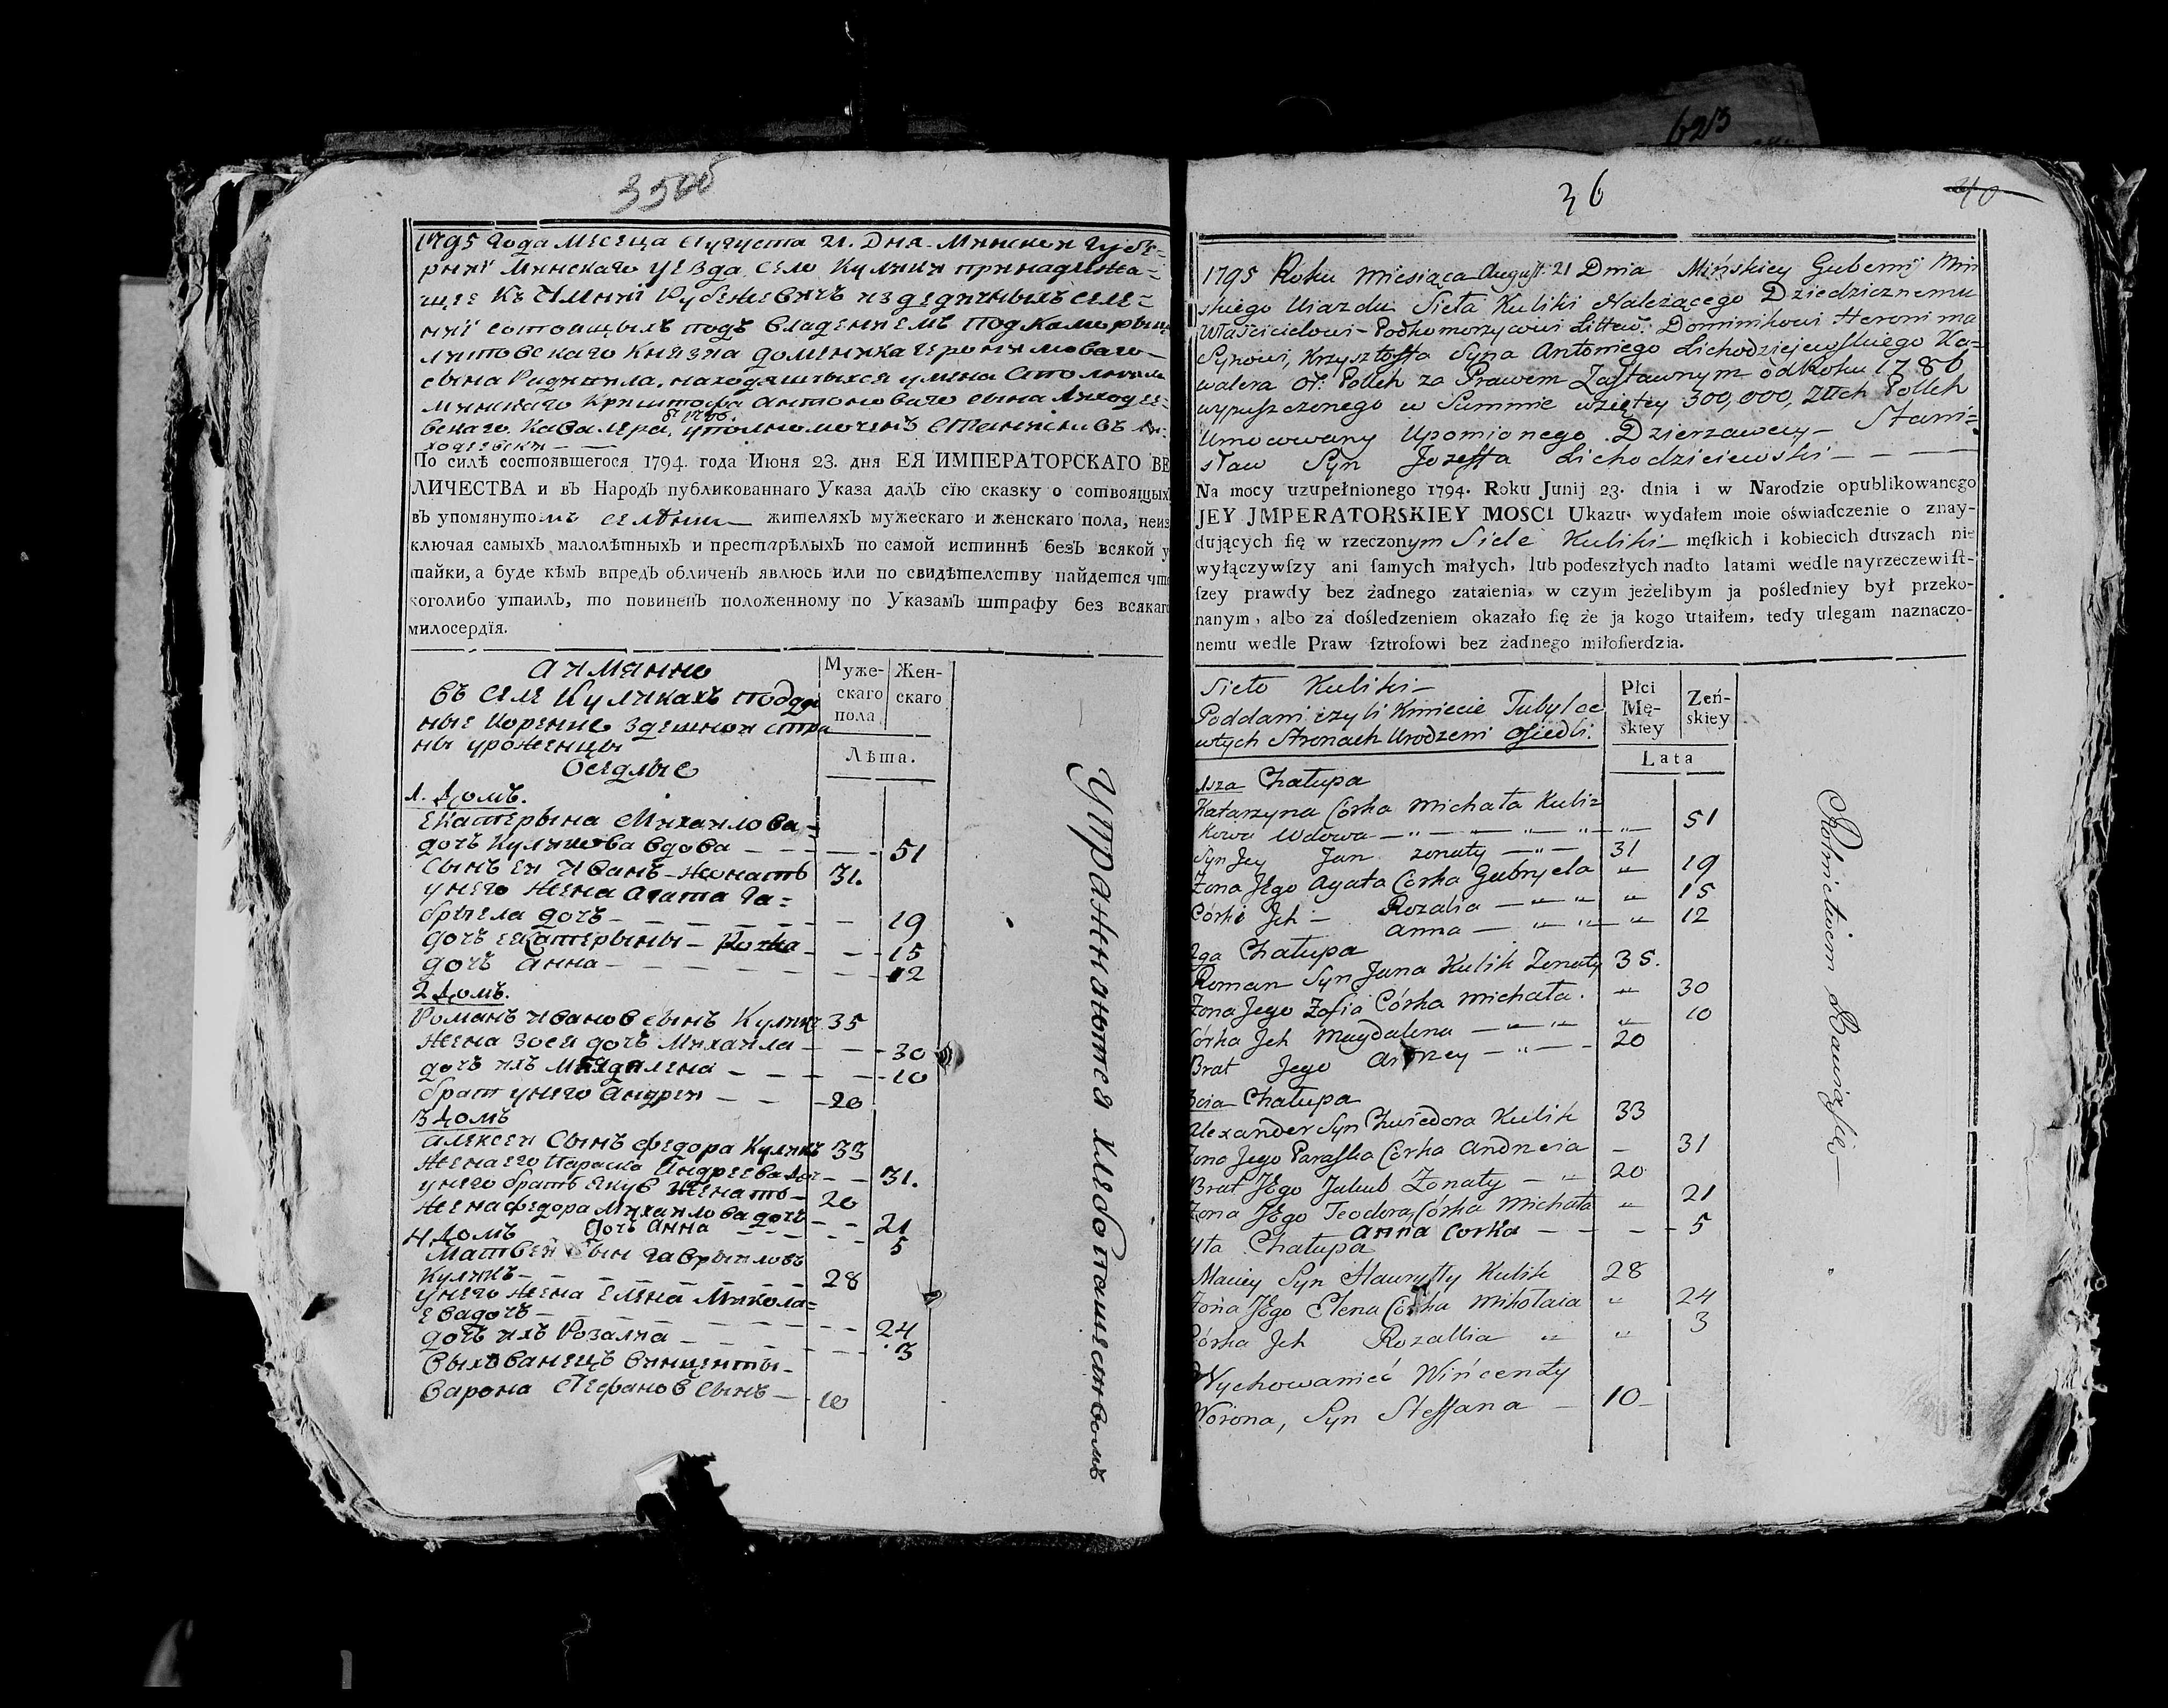 35об
1795 года Месеца Августа 21. Дня Минской Губе=
рнїй Минскаго уезда Село Кулики принадлежа=
щее къ Имѣнїй Рубежевичъ из дедичныхъ селе=
нїй состоящыхъ подъ владениемъ Подкоморыи
литовскаго Князна Доминика Геронимоваго
сына Радзивила, находяшчыхся у мена
минскаго Криштофа Антоноваго сына Лиходзе=
вскаго Кавалера, уполномоченъ Станиславъ Ли=
ходзевски
По силѣ состоявшегося 1794. года Июня 23. дня ЕЯ ИМПЕРАТОРСКАГО ВЕ
ЛИЧЕСТВА и въ Народъ публикованнаго Указа далъ сїю сказку о сотвоящых
въ упомянутомъ селѣнии жителяхъ мужескаго и женскаго пола, неиз
ключая самыхъ малолѣтныхъ и престарѣлыхъ по самой истиннѣ безъ всякой у
тайки, а буде кѣмъ впредъ обличенъ явлюсь или по свидѣтелству найдется что
коголибо утаилъ, то повиненъ положенному по Указамъ штрафу без всякаго
милосердїя.
а имянно
въ селе Куликахъ поддан
ные корение здешной стра
ны уроженцы
Оседлые
Муже-
скаго
пола
Жен-
скаго
Лѣта.
1. Домъ.
Екатерына Михайлова
дочъ Куликова вдова — 51
Сынъ ея Иванъ Жонатъ 31.
у него жена Агата Га=
брыела дочъ — 19
дочъ Екатерыны — Розалиа — 15
дочъ Анна — 12
2 Домъ.
Романъ Иванов сынъ Куликъ 35
жена Зося дочъ Михаила — 30
дочъ ихъ Магдалена — 10
братъ у него Андрей — 20
3 Домъ
Алексей Сынъ Федора Куликъ 33
жена его Параска Андреева доч — 31.
у него братъ Якуб Женатъ — 20
жена Федора Михайлова дочъ — 21
Дочъ Анна — 5
4 Домъ
Матвей Сын Гаврыловъ
Куликъ — 28
у него жена Елена Микола=
ева дочъ — 24
дочъ ихъ Розалиа — 3
Выхованецъ Винценты
Варона Стефановъ Сынъ — 10
Упражнаются хлебопашествомъ
623
36
40
1795 Roku Miesiąca August: 21 Dnia Mińskiey Gubernij Miń
skiego Uiazdu Sieła Kuliki Należącego Dziedzicznemu
Właścicielowi Podkomorzycowi Littew: Dominikowi Heronima
Synowi, Krzysztoffa Syna Antoniego Lichodziejewskiego Ka=
walera Or: Pollch za Prawem Zastawnym od Roku 1786
wypuszczonego w Summie wziętey 300,000, Złłch Pollch
Umocowany Upomionego Dzierzawcy — Stani=
sław Syn Jozeffa Lichodzieiewski — — —
Na mocy uzupełnionego 1794. Roku Junij 23. dnia i w Narodzie opublikowanego
JEY JMPERATORSKIEY MOSCI Ukazu wydałem moie oświadczenie o znay-
dujących ſię w rzeczonym Siele Kuliki męſkich i kobiecich duszach nie
wyłączywſzy ani ſamych małych, lub podeszłych nadto latami wedle nayrzeczewiſt-
ſzey prawdy bez żadnego zataienia, w czym jeżelibym ja pośledniey był przeko-
nanym, albo za dośledzeniem okazało ſię że ja kogo utaiłem, tedy ulegam naznaczo-
nemu wedle Praw ſztrofowi bez żadnego miłoſierdzia.
Sieło Kuliki —
Poddani czyli Kmiecie Tubyloc
wtych Stronach Urodzeni Osiedli.
Płci
Mę-
skiey
Zeń-
skiey
Lata
1sza Chałupa
Katarzyna Corka Michała Kuli=
kowa Wdowa — „ — 51
Syn Jey Jan zonaty — „ — 31
Żona Jego Agata Corka Gabryela „ 19
Córki Jch — Rozalia — „ „ „ 15
Anna — „ „ „ 12
2ga Chałupa
Roman Syn Jana Kulik Zonaty 35.
Żona Jego Zofia Córka Michała. „ 30
Córka Jch Magdalena — „ „ „ 10
Brat Jego Andrzey — „ — 20
3cia Chałupa
Alexander Syn Chwiedora Kulik 33
Żona Jego Paraska Córka Andrzeia — 31
Brat Jego Jakub Żonaty — „ 20
Żona Jego Teodora, Córka Michała „ 21
Anna Corka — — — 5
4ta Chałupa
Maciey Syn Hawryłły Kulik 28
Żona Jego Elena Córka Mikołaia „ 24
Córka Jch Rozallia „ „ 3
Wychowanieć Wińcenty
Worona, Syn Steffana — 10 —
Rolnictwem Bawią się —